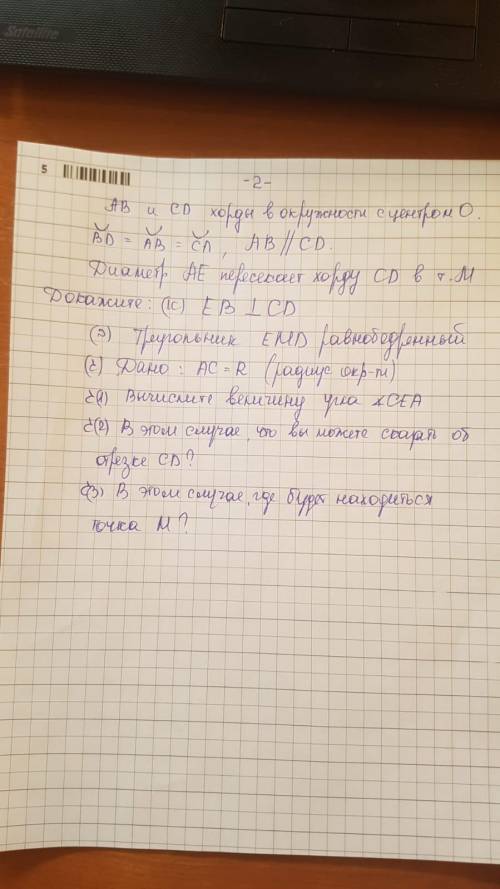 Satellite
5
-2-
AB и CD хорды в окружности с центром O.
BD = AB = CA, AB // CD.
Диаметр AE пересекает хорду CD в т. M
Докажите: (א) EB ⊥ CD
(ב) Треугольник EMD равнобедренный
(ג) Дано: AC = R (радиус окр-ти)
ג(1) Вычислите величину угла ∢CEA
ג(2) В этом случае, что вы можете сказать об
отрезке CD?
ג(3) В этом случае, где будет находиться
точка M?